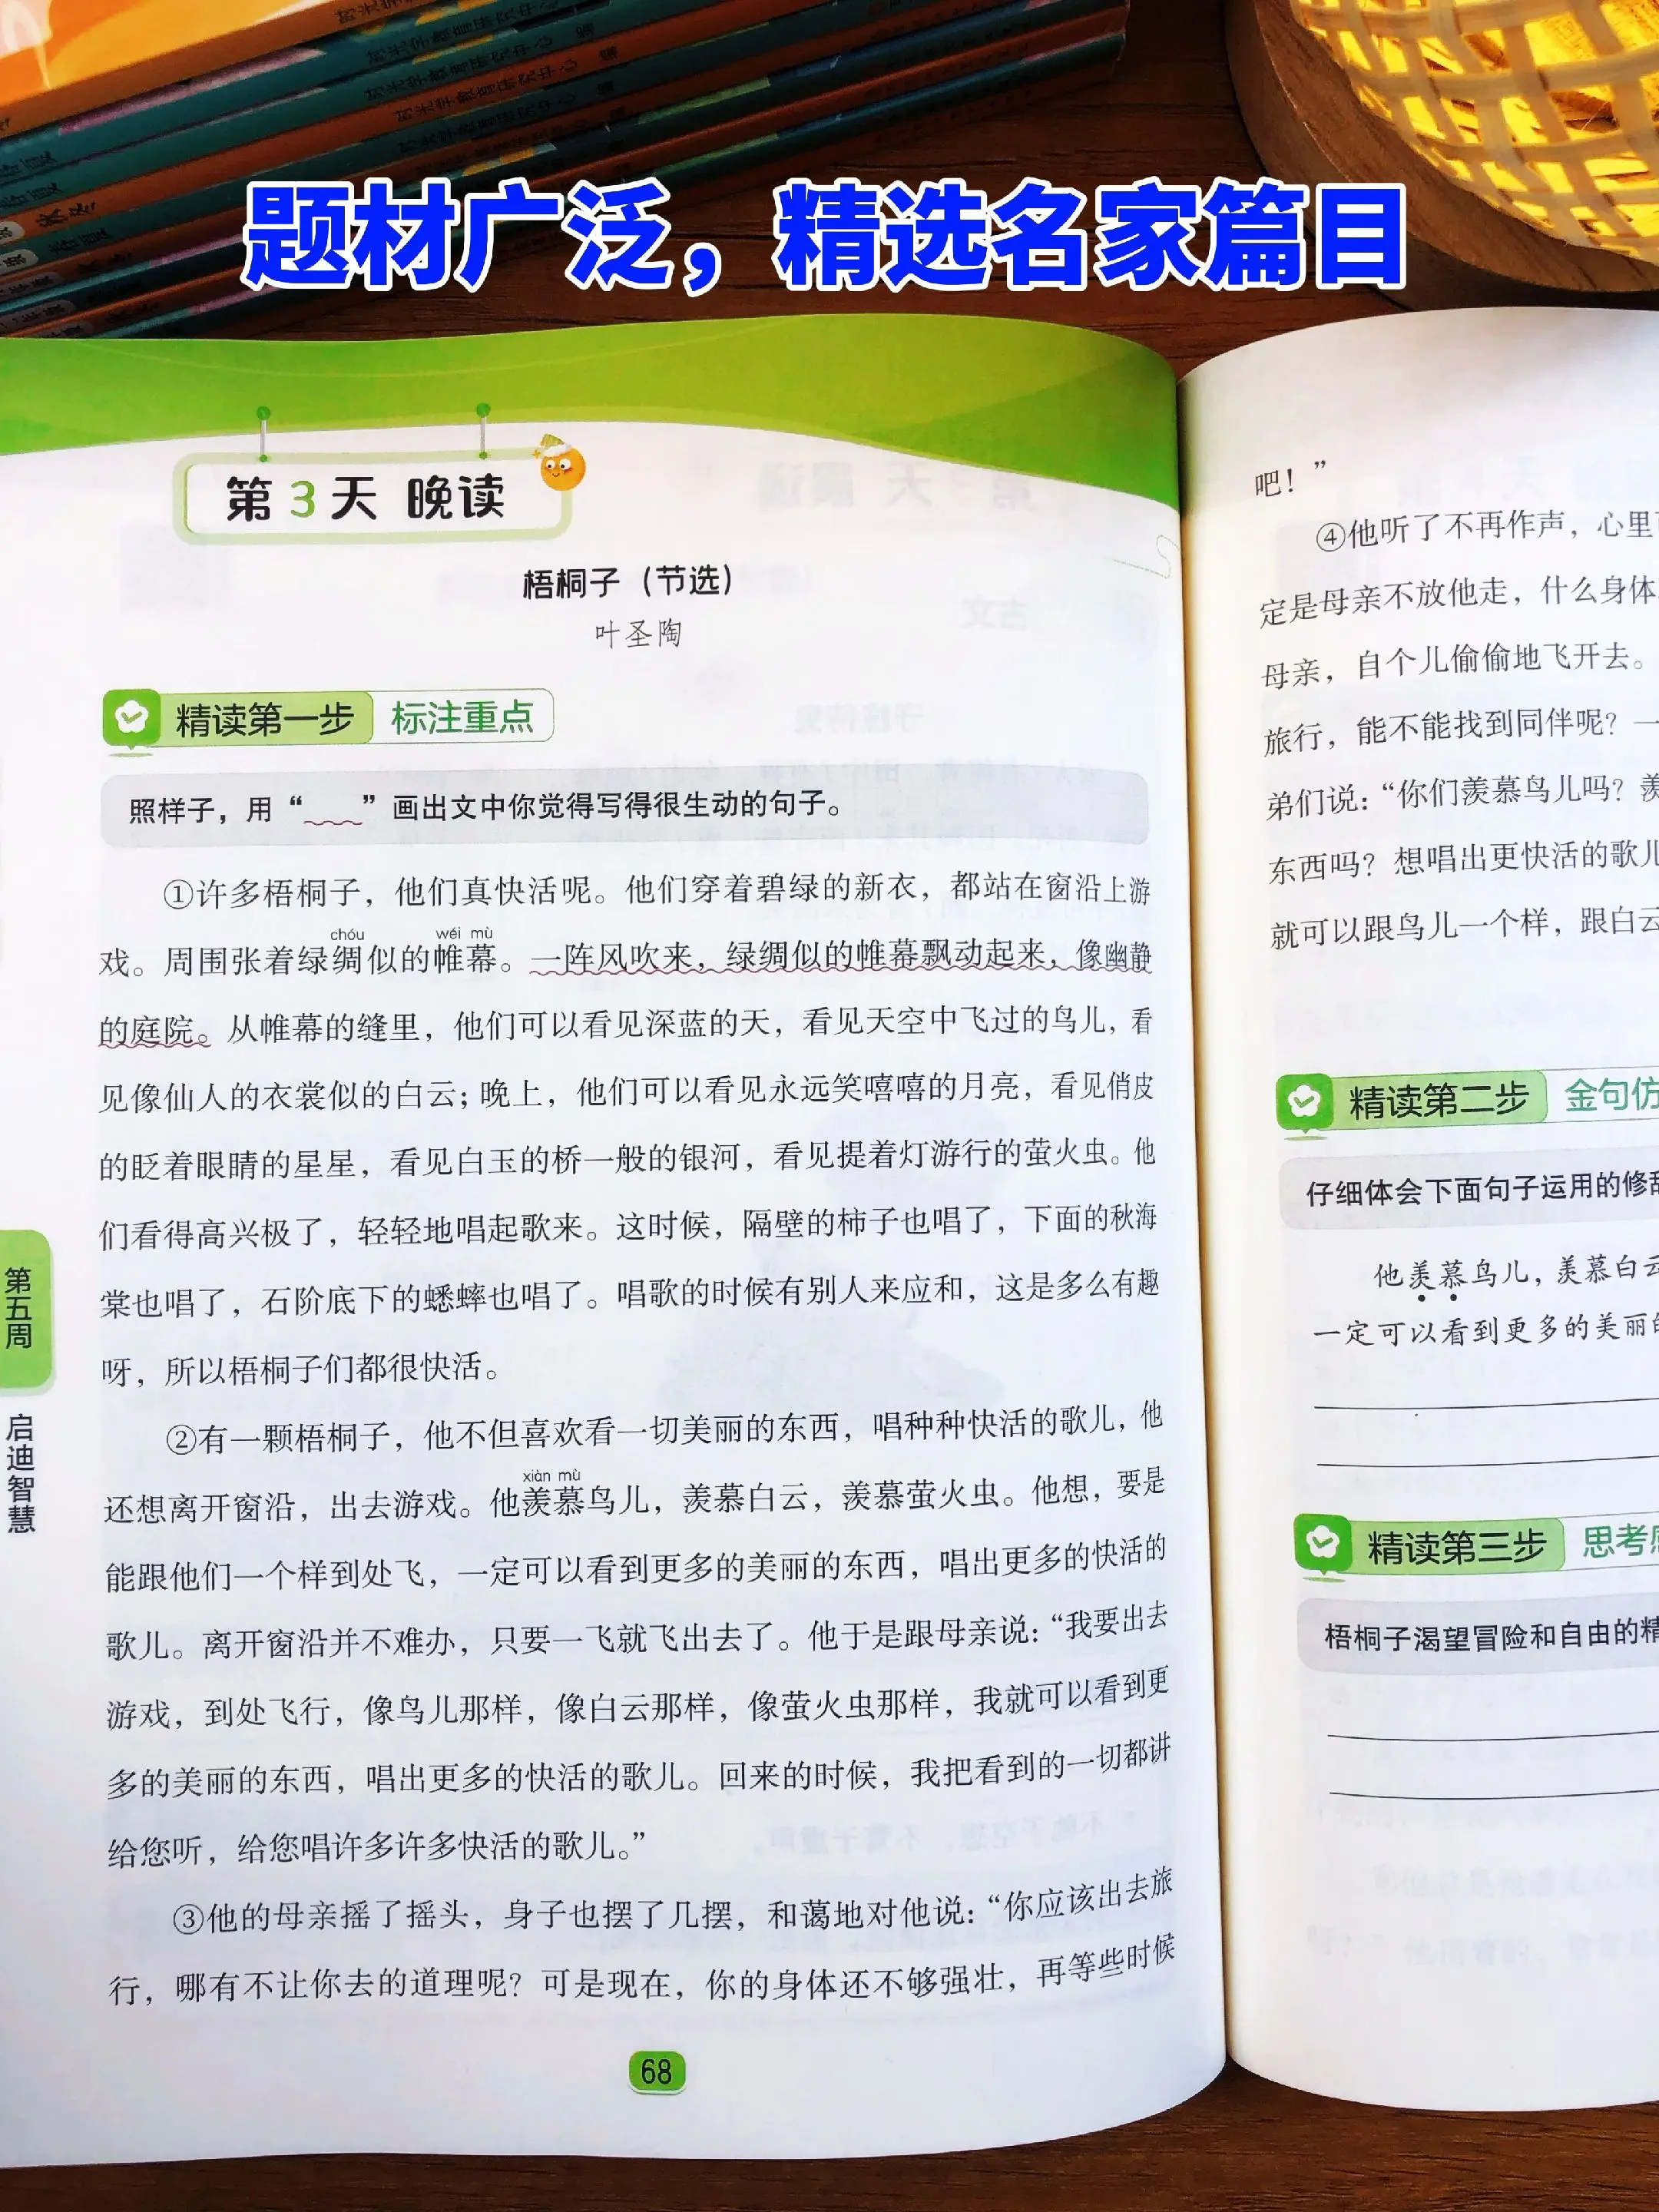 时光学教育研究中心 编
时光学教育研究中心 编
时光学教育研究中心 编
题材广泛，精选名家篇目
第3天 晚读
梧桐子（节选）
叶圣陶
精读第一步 标注重点
照样子，用“﹏﹏”画出文中你觉得写得很生动的句子。
①许多梧桐子，他们真快活呢。他们穿着碧绿的新衣，都站在窗沿上游
chóu wéi mù
戏。周围张着绿绸似的帷幕。一阵风吹来，绿绸似的帷幕飘动起来，像幽静
的庭院。从帷幕的缝里，他们可以看见深蓝的天，看见天空中飞过的鸟儿，看
见像仙人的衣裳似的白云；晚上，他们可以看见永远笑嘻嘻的月亮，看见俏皮
的眨着眼睛的星星，看见白玉的桥一般的银河，看见提着灯游行的萤火虫。他
们看得高兴极了，轻轻地唱起歌来。这时候，隔壁的柿子也唱了，下面的秋海
棠也唱了，石阶底下的蟋蟀也唱了。唱歌的时候有别人来应和，这是多么有趣
呀，所以梧桐子们都很快活。
②有一颗梧桐子，他不但喜欢看一切美丽的东西，唱种种快活的歌儿，他
xiàn mù
还想离开窗沿，出去游戏。他羡慕鸟儿，羡慕白云，羡慕萤火虫。他想，要是
能跟他们一个样到处飞，一定可以看到更多的美丽的东西，唱出更多的快活的
歌儿。离开窗沿并不难办，只要一飞就飞出去了。他于是跟母亲说：“我要出去
游戏，到处飞行，像鸟儿那样，像白云那样，像萤火虫那样，我就可以看到更
多的美丽的东西，唱出更多的快活的歌儿。回来的时候，我把看到的一切都讲
给您听，给您唱许多许多快活的歌儿。”
③他的母亲摇了摇头，身子也摆了几摆，和蔼地对他说：“你应该出去旅
行，哪有不让你去的道理呢？可是现在，你的身体还不够强壮，再等些时候
68
第五周
启迪智慧
吧！”
④他听了不再作声，心里
定是母亲不放他走，什么身体
母亲，自个儿偷偷地飞开去。
旅行，能不能找到同伴呢？一
弟们说：“你们羡慕鸟儿吗？羡
东西吗？想唱出更快活的歌儿
就可以跟鸟儿一个样，跟白云
精读第二步 金句仿
仔细体会下面句子运用的修辞
他羡慕鸟儿，羡慕白云
一定可以看到更多的美丽的
精读第三步 思考感
梧桐子渴望冒险和自由的精